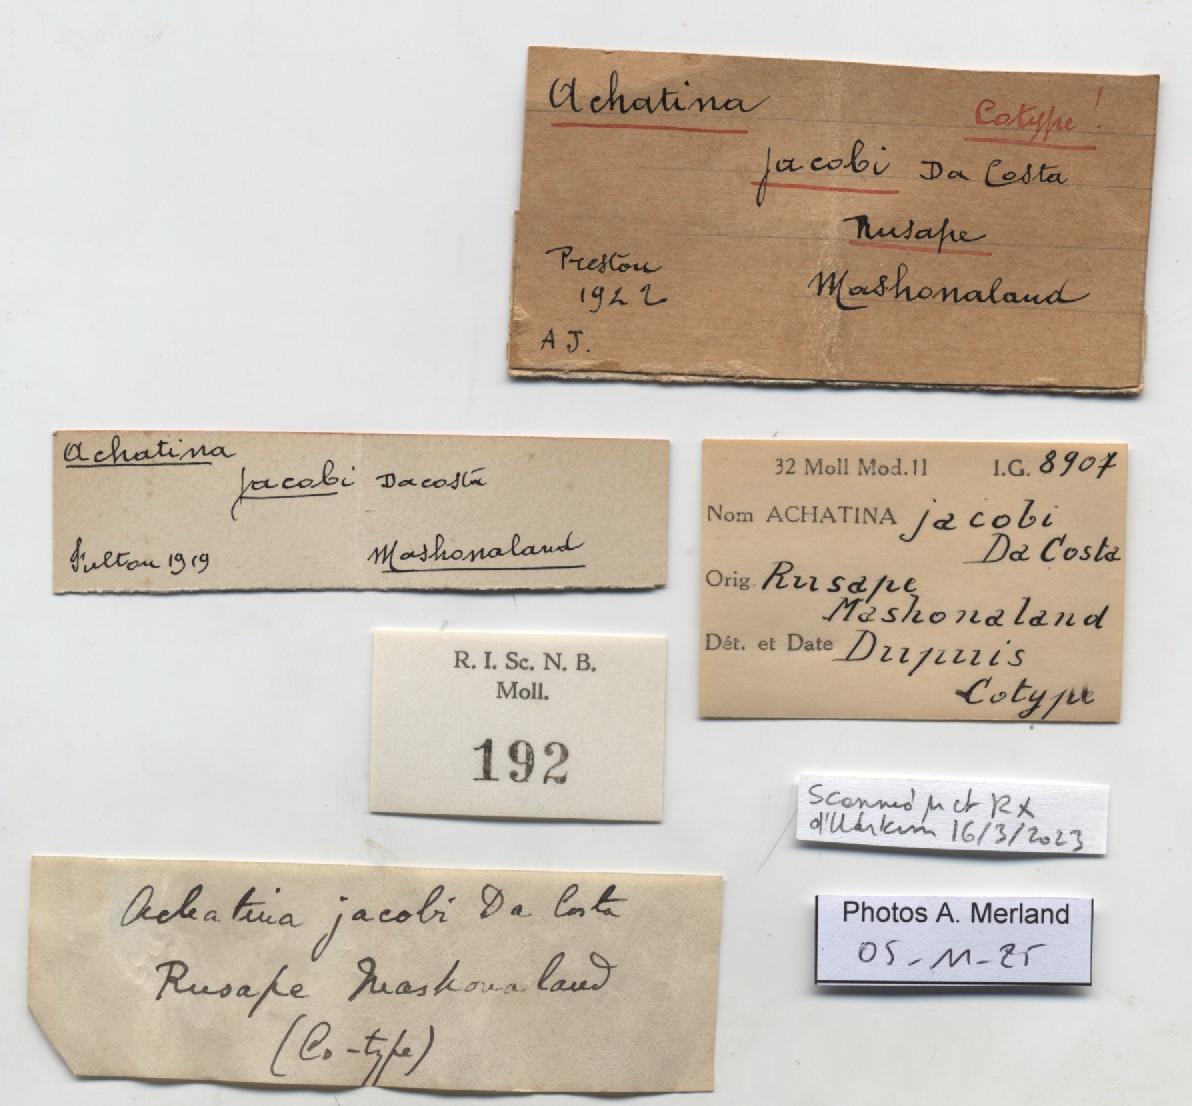 Achatina
Cotype!
jacobi Da Costa
Rusape
Preston
1922
Mashonaland
A J.
Achatina
jacobi Dacosta
Fulton 1919
Mashonaland
32 Moll Mod.11 I.G. 8907
Nom ACHATINA jacobi
Da Costa
Orig. Rusape
Mashonaland
Dét. et Date Dupuis
Cotype
R. I. Sc. N. B.
Moll.
192
Scanned µct RX
16/3/2023
Photos A. Merland
05-11-25
Achatina jacobi Da Costa
Rusape Mashonaland
(Co-type)